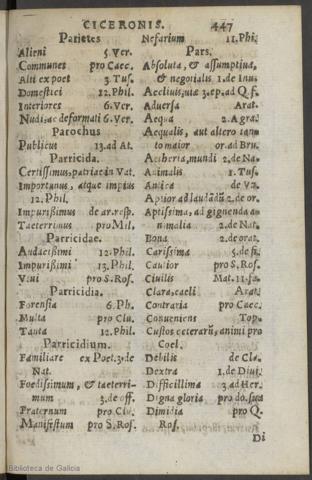 CICERONIS. 447
Parietes
Alieni 5 Ver.
Communes pro Caec.
Alti ex poet 3. Tus.
Domestici 12. Phil.
Interiores 6. Ver.
Nudi, ac deformati 6. Ver.
Parochus
Publicus 13. ad At.
Parricida.
Certissimus, patriae in Vat.
Importunus, atque impius
12. Phil.
Impurißimus de ar. resp.
Taeterrimus pro Mil.
Parricidae.
Audacißimi 12. Phil.
Impurißimi 13. Phil.
Viui pro S. Ros.
Parricidia.
Forensia 6. Ph.
Multa pro Clu.
Tanta 12. Phil.
Parricidium.
Familiare ex Poet. 3. de
Nat.
Foedissimum, & taeterri-
mum 3. de off.
Fraternum pro Clu.
Manifestum pro S. Ros.
Nefarium 11. Phi.
Pars.
Absoluta, & assumptiua,
& negotialis 1. de Inu.
Accliuis, uiae 3. ep. ad Q. f.
Aduersa Arat.
Aequa 2. Agra.
Aequalis, aut altero tanto
maior or. ad Bru.
Aetheria, mundi 2. de Na.
Animalis 1. Tus.
Antica
Aptior ad laudādū 2. de or.
Aptißima, ad gignenda an
nimalia 2. de Nat.
Bona 2. de orat.
Carißima 5. de fi.
Cautior pro S. Ros.
Ciuilis
Clara, caeli Arat.
Contraria pro Caec.
Conueniens Top.
Custos ceterarū, animi pro
Coel.
Debilis de Cla.
Dextra 1. de Diui.
Difficillima 3. ad Her.
Digna gloria pro do. sua
Dimidia pro Q.
Ros.
Di
Biblioteca de Galicia